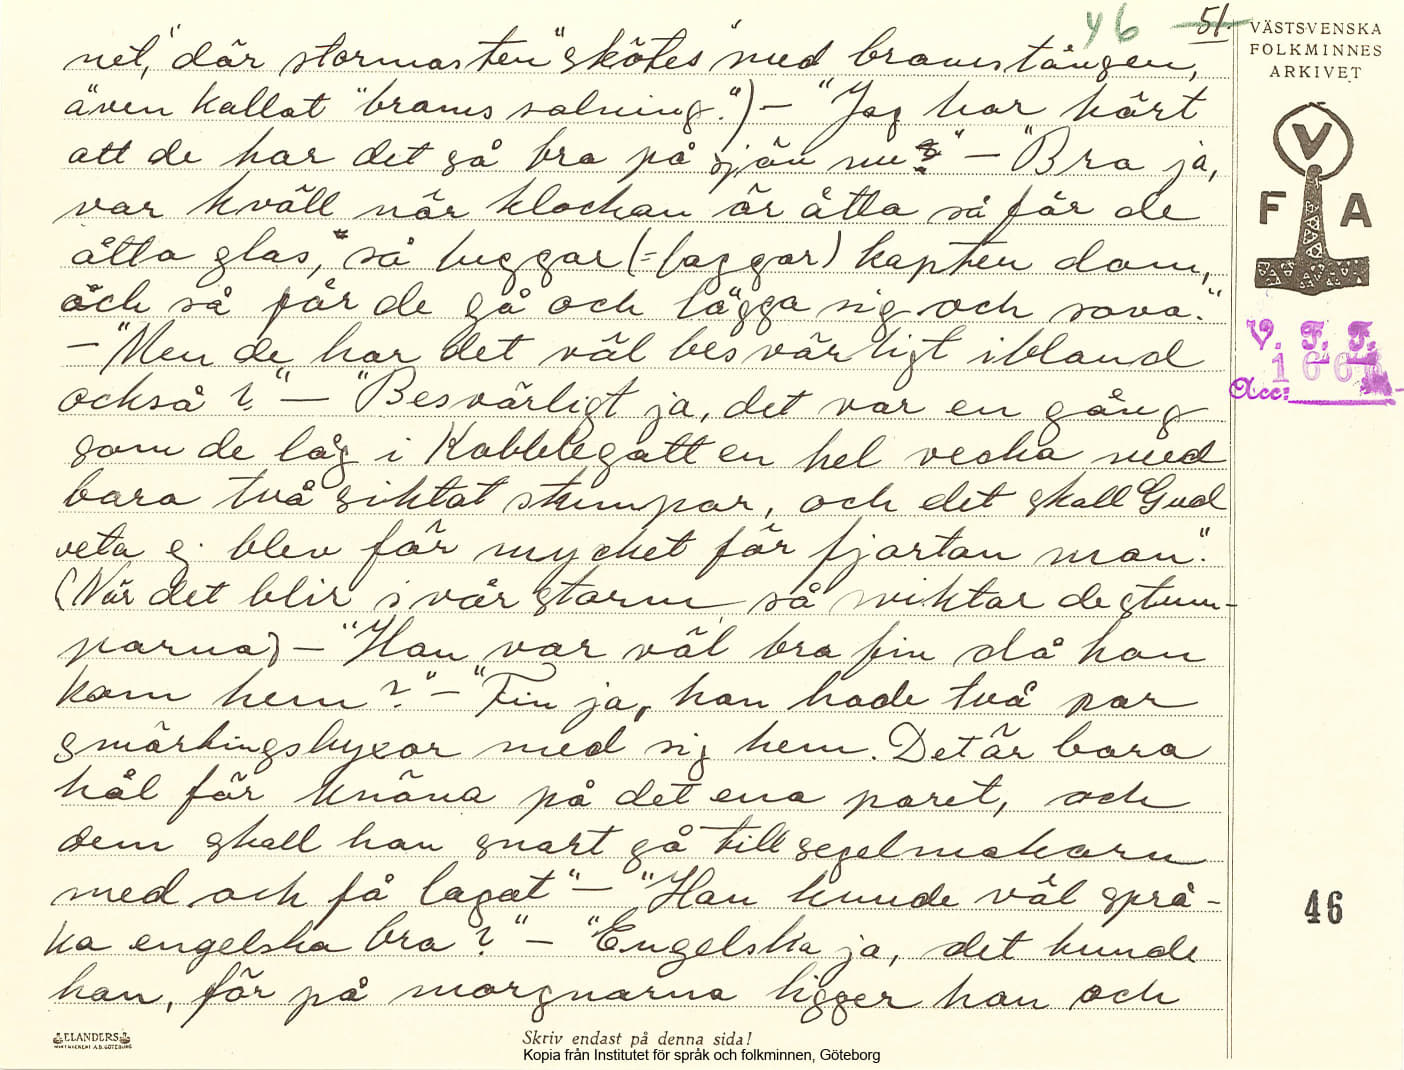 46 51.
VÄSTSVENSKA
FOLKMINNES
ARKIVET
V
F A
V. F. F.
Acc:
net," där stormasten "skötes" med bramstången,
även kallat "brams salning.") – "Jag har hört
att de har det så bra på sjön nu?" – "Bra ja,
var kväll när klockan är åtta så får de
åtta glas," så luggar (= laggar) kapten dom,
och så får de gå och lägga sig och sova."
– "Men de har det väl besvärligt ibland
också?" – "Besvärligt ja, det var en gång
som de låg i Kabblegatt en hel vecka med
bara två siktat stumpar, och det skall Gud
veta ej blev för mycket för fjortan man."
(När det blir svår storm så sviktar de stum-
parna) – "Han var väl bra fin då han
kom hem?" – "Fin ja, han hade två par
smärtingsbyxor med sig hem. Det är bara
hål för knäna på det ena paret, och
dem skall han snart gå till segelmakarn
med och få lagat" – "Han kunde väl språ-
ka engelska bra?" – "Engelska ja, det kunde
han, för på morgnarna ligger han och
46
ELANDERS
Skriv endast på denna sida!
Kopia från Institutet för språk och folkminnen, Göteborg